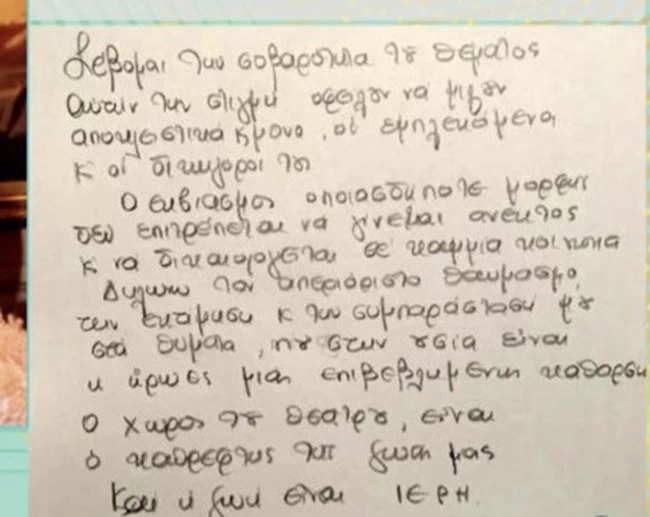 Σέβομαι την σοβαρότητα τȣ θέματος
αυτήν την στιγμή οφείλȣν να μιλȣν
αποκλειστικά κ μόνο, οι εμπλεκόμενοι
κ οι δικηγόροι τȣς
Ο εκβιασμός οποιασδήποτε μορφής
δεν επιτρέπεται να γίνεται ανεκτός
κ να δικαιολογείται σε καμμία κοινωνία
Δηλώνω τον απεριόριστο θαυμασμό,
την εκτίμηση κ την συμπαράσταση μȣ
στα θύματα, πȣ στην ȣσία είναι
η ήρωες μιας επιβεβλημένης κάθαρσης
Ο χώρος τȣ θεάτρȣ, είναι
ο καθρέφτης της ζωής μας
Και η ζωή είναι ΙΕΡΗ.